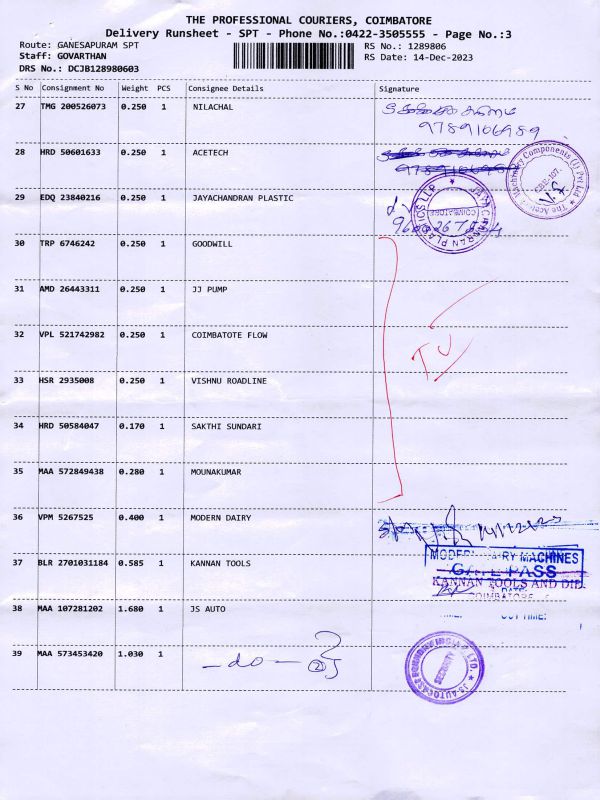 THE PROFESSIONAL COURIERS, COIMBATORE
Delivery Runsheet - SPT - Phone No.:0422-3505555 - Page No.:3
Route: GANESAPURAM SPT RS No.: 1289806
Staff: GOVARTHAN RS Date: 14-Dec-2023
DRS No.: DCJB128980603
S No Consignment No Weight PCS Consignee Details Signature
27 TMG 200526073 0.250 1 NILACHAL
9789106989
28 HRD 50601633 0.250 1 ACETECH
29 EDQ 23840216 0.250 1 JAYACHANDRAN PLASTIC
30 TRP 6746242 0.250 1 GOODWILL
31 AMD 26443311 0.250 1 JJ PUMP
32 VPL 521742982 0.250 1 COIMBATOTE FLOW
33 HSR 2935008 0.250 1 VISHNU ROADLINE
34 HRD 50584047 0.170 1 SAKTHI SUNDARI
35 MAA 572849438 0.280 1 MOUNAKUMAR
36 VPM 5267525 0.400 1 MODERN DAIRY
MACHINES
GATE PASS
37 BLR 2701031184 0.585 1 KANNAN TOOLS
KANNAN TOOLS AND DIE
38 MAA 107281202 1.680 1 JS AUTO
OUT TIME:
39 MAA 573453420 1.030 1 -do-
SECURITY